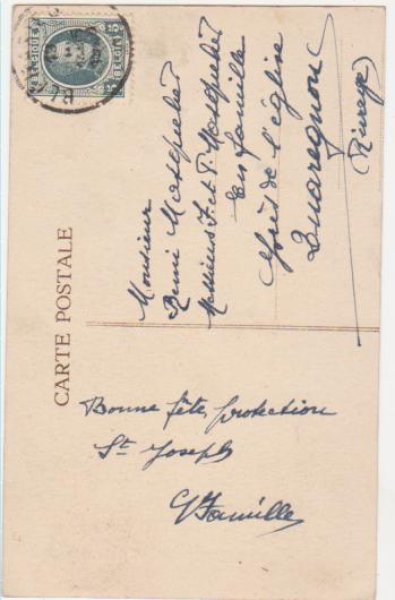 CARTE POSTALE
BELGIQUE
BELGIË
15
Monsieur
Remi
Messieurs F. et P.
En famille
près de l'église
Quaregnon
(Rivage)
Bonne fête, protection
St Joseph
Famille